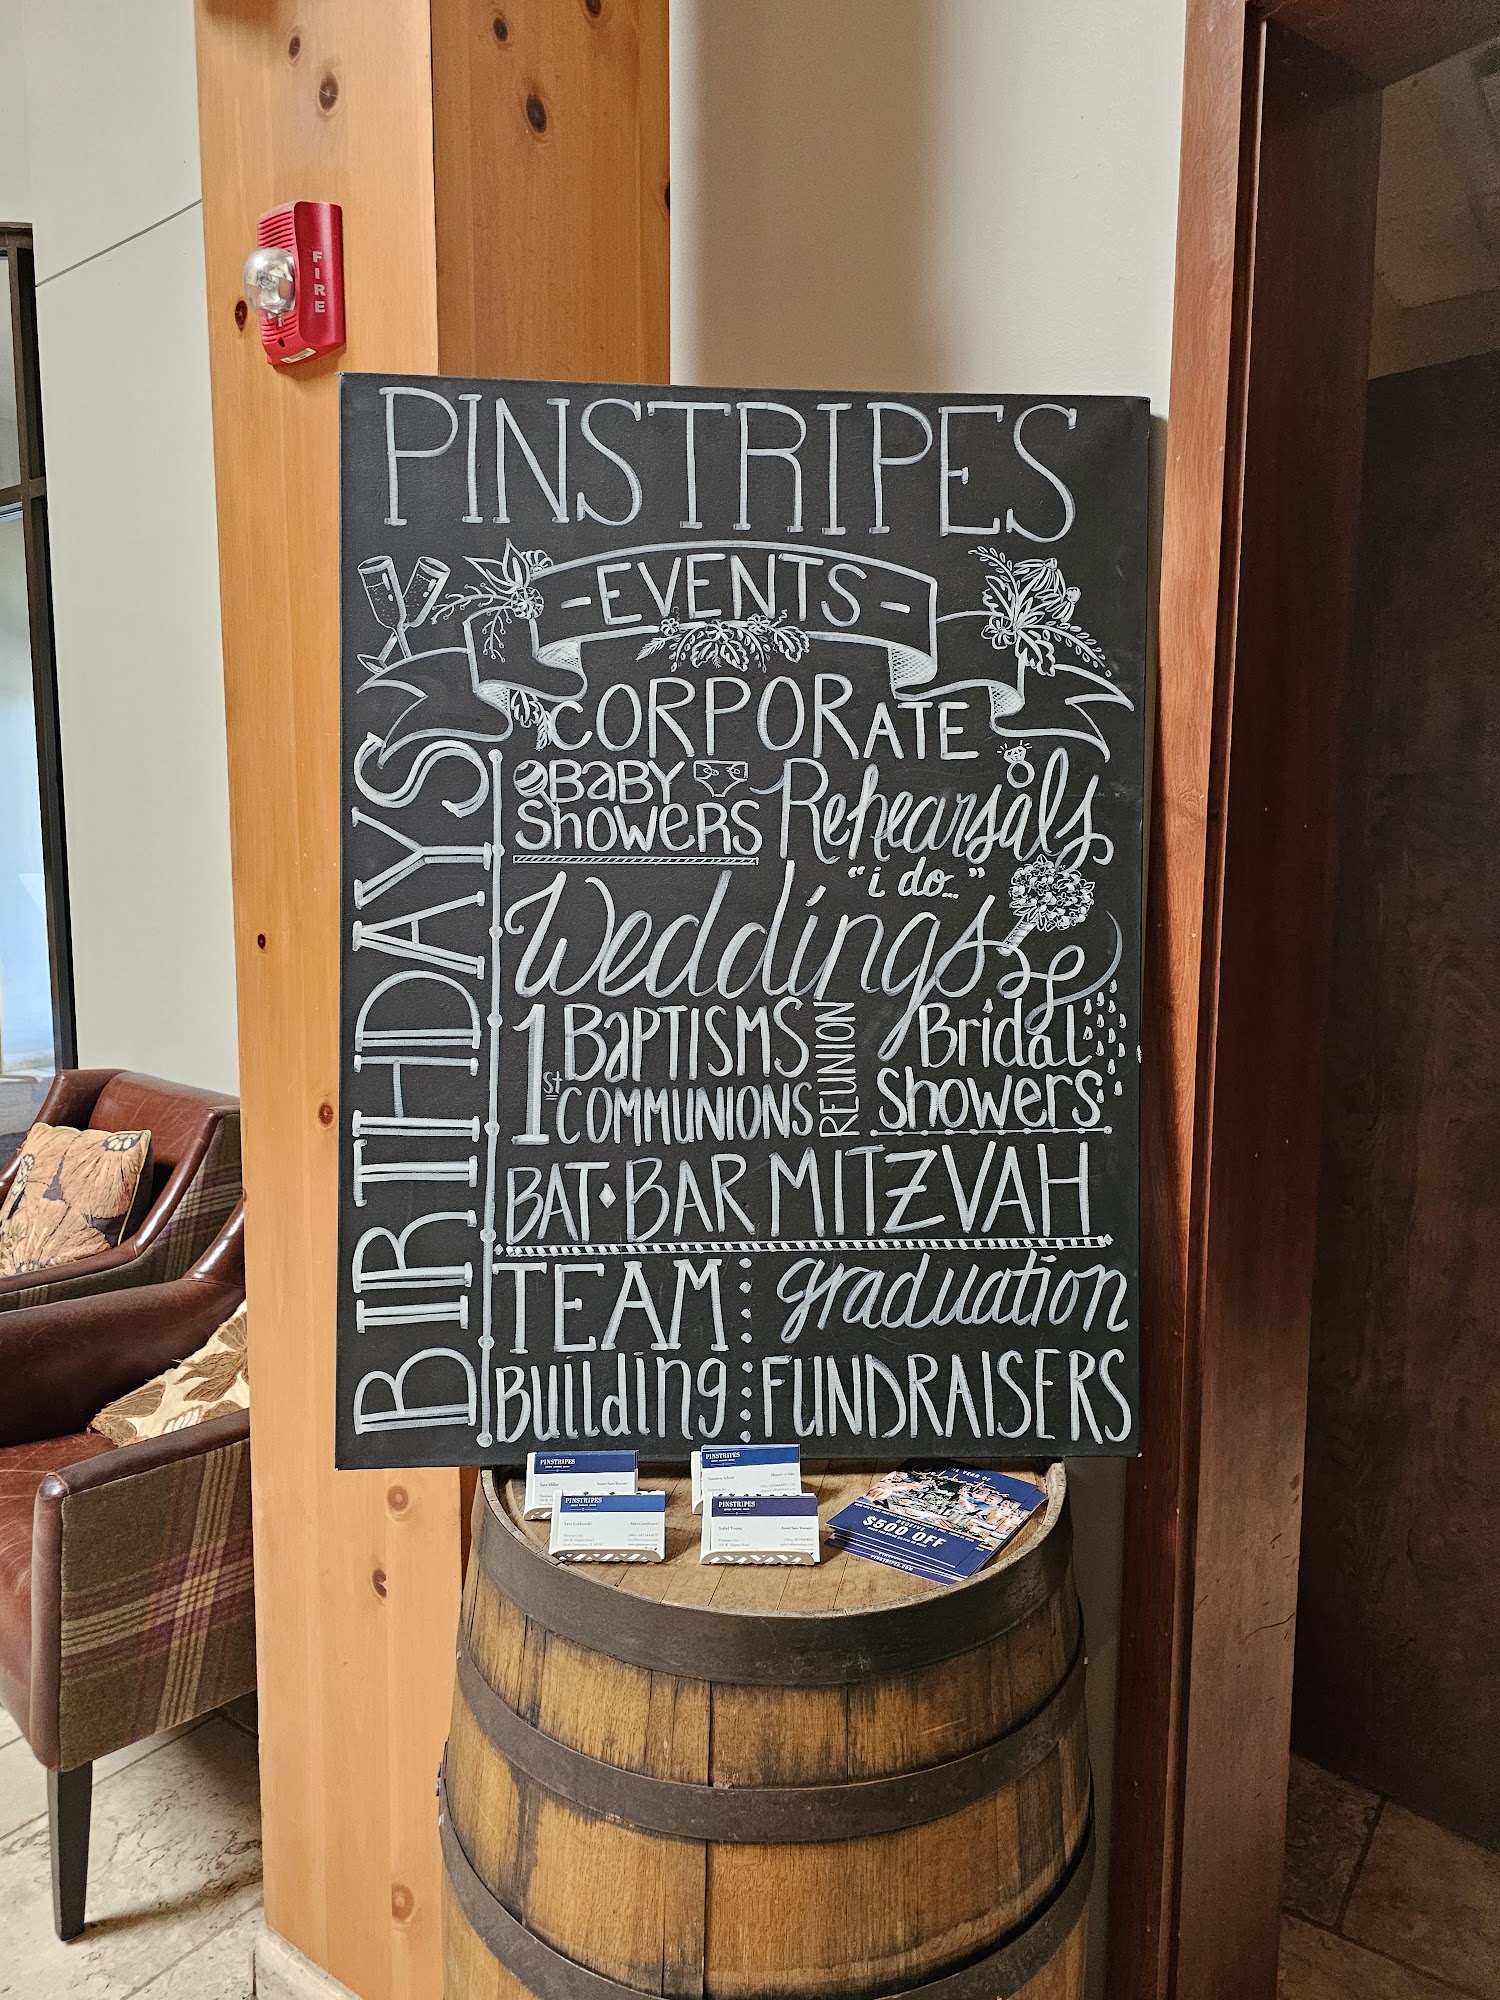 FIRE
PINSTRIPES
-EVENTS-
CORPORATE
BABY
SHOWERS
Rehearsals
"i do..."
Weddings
BIRTHDAYS
1st
BAPTISMS
COMMUNIONS
REUNION
Bridal
Showers
BAT • BAR MITZVAH
TEAM
Building
graduation
FUNDRAISERS
PINSTRIPES
PINSTRIPES
PINSTRIPES
PINSTRIPES
THE YEAR OF
RECEIVE
$500 OFF
PINSTRIPES.COM